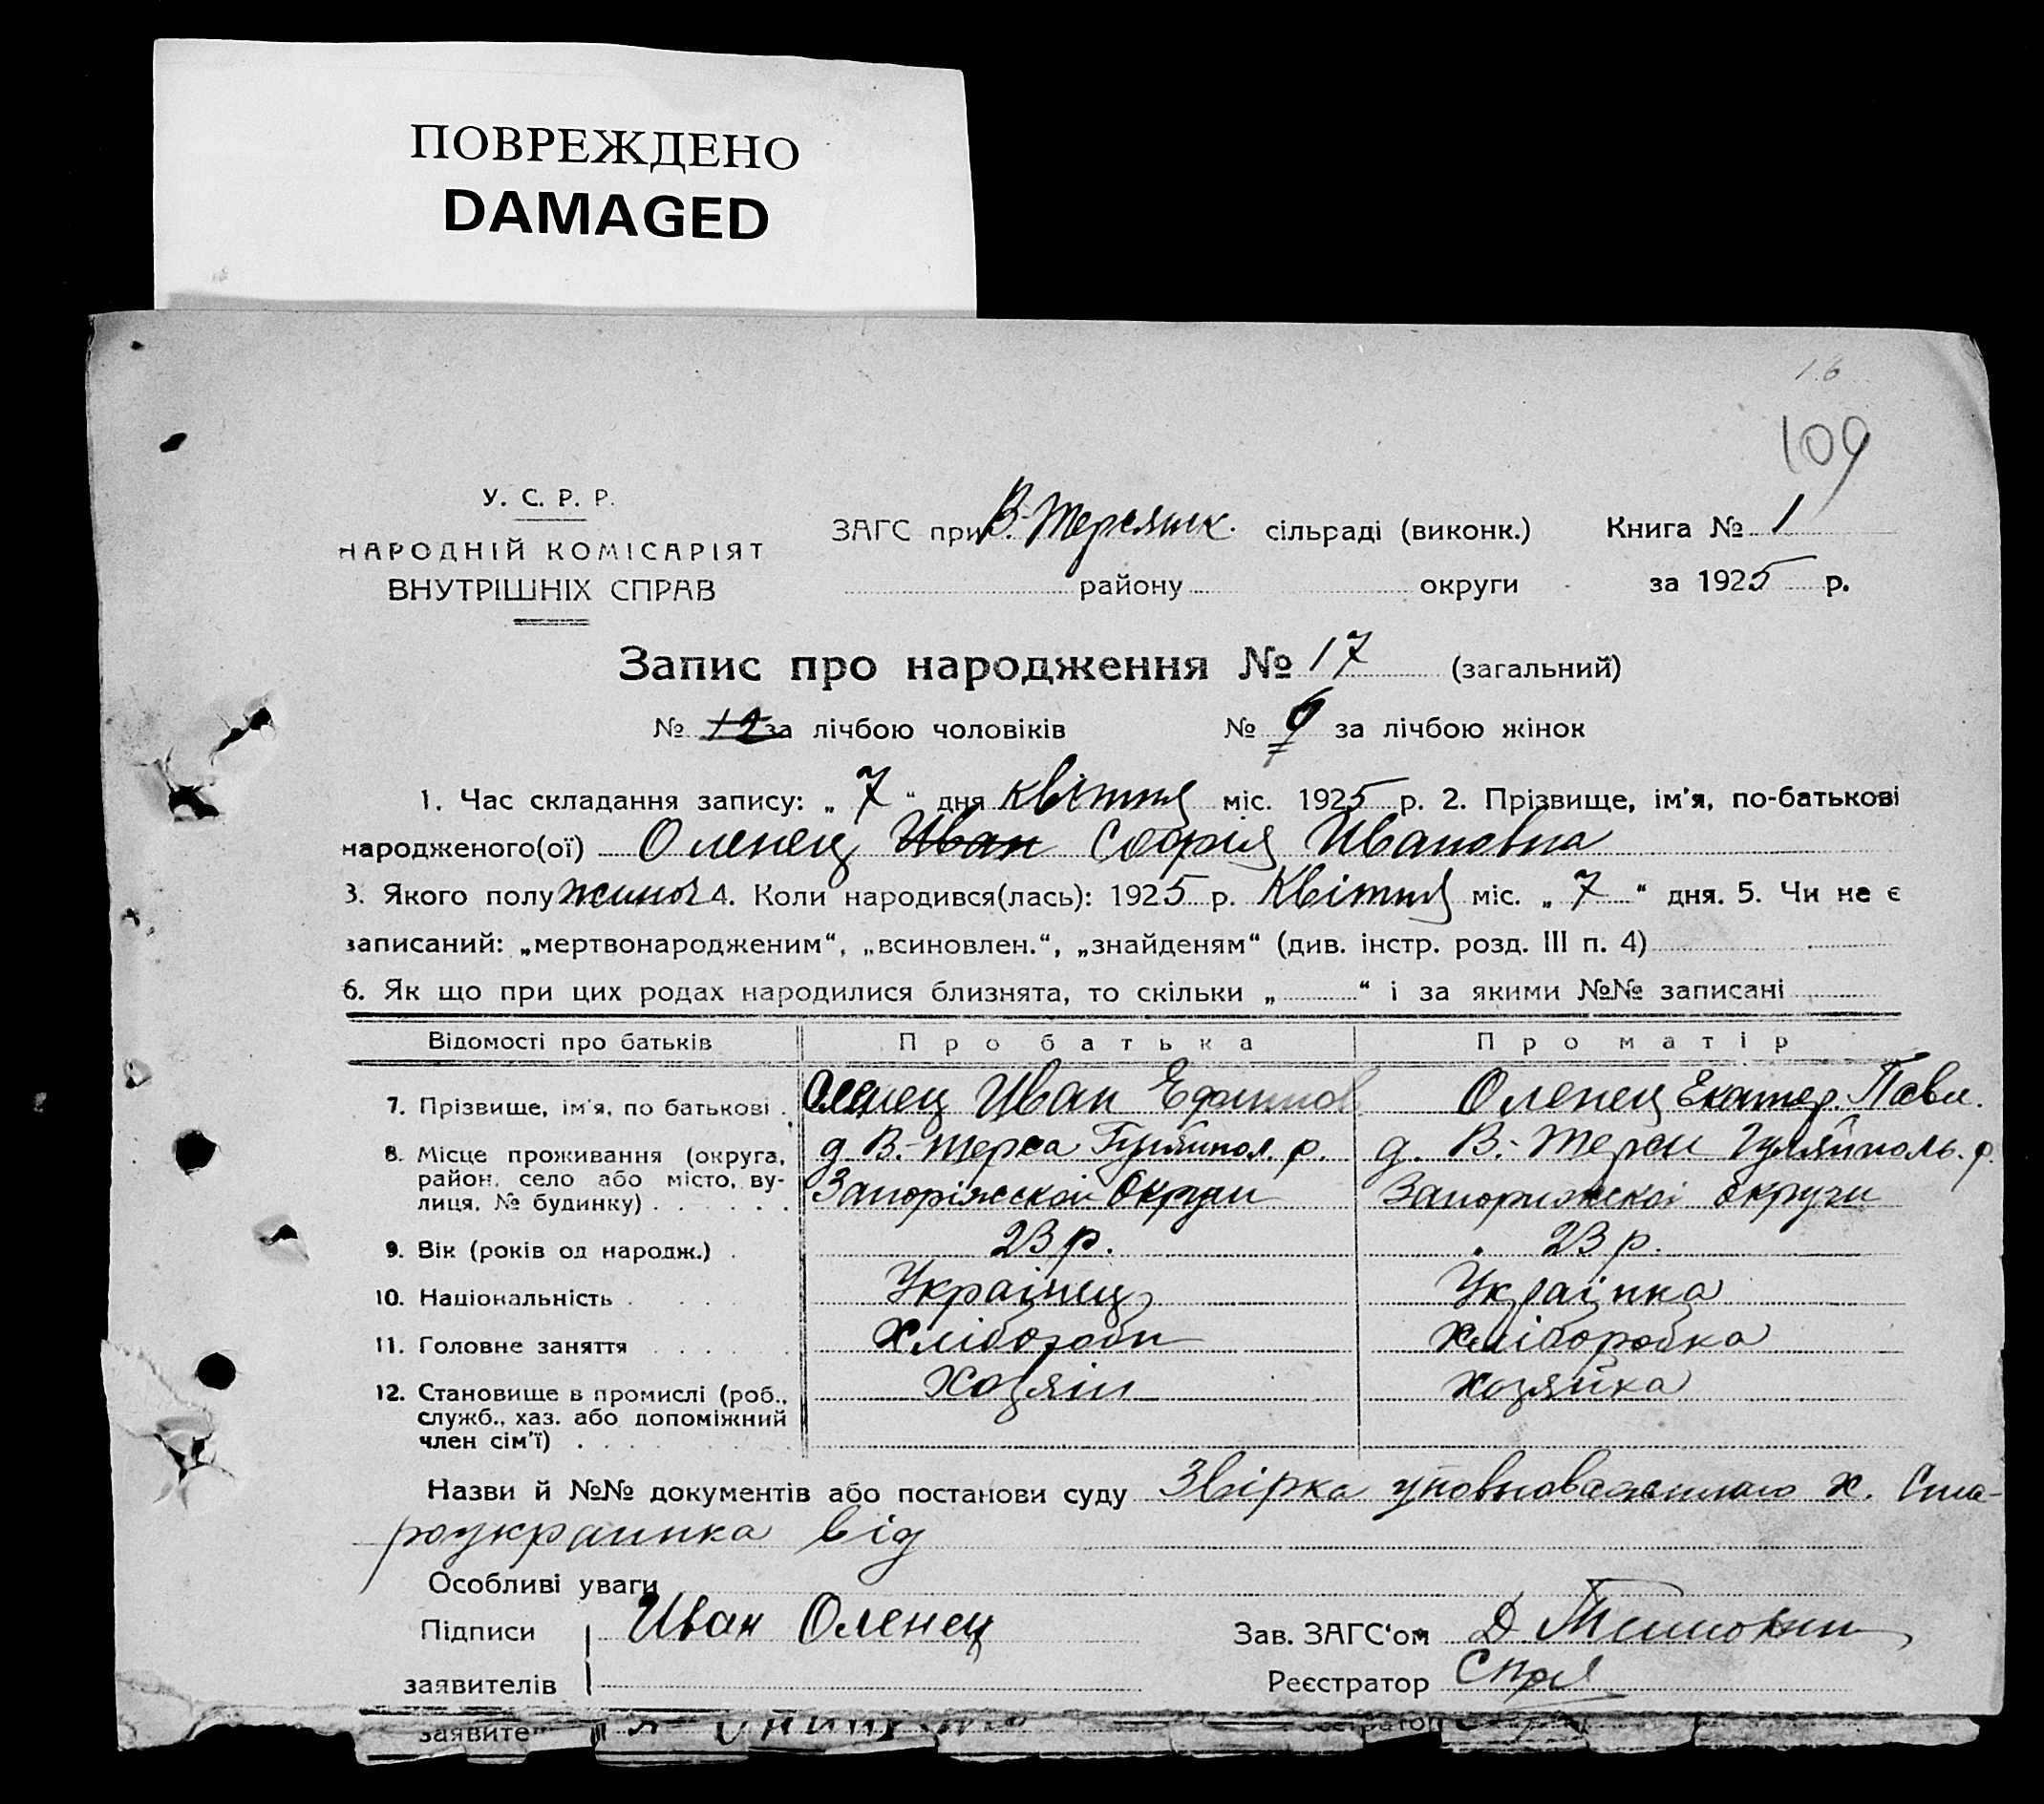 ПОВРЕЖДЕНО
DAMAGED
16
109
У. С. Р. Р.
НАРОДНІЙ КОМІСАРІЯТ
ВНУТРІШНІХ СПРАВ
ЗАГС при В.-Терсянск. сільраді (виконк.) Книга № 1
району округи за 1925 р.
Запис про народження № 17 (загальний)
№ 12 за лічбою чоловіків № 6 за лічбою жінок
1. Час складання запису: „ 7 “ дня квітня міс. 1925 р. 2. Прізвище, ім'я, по-батькові
народженого(ої) Оленец Иван Софія Ивановна
3. Якого полу жиноч 4. Коли народився(лась): 1925 р. Квітня міс. „ 7 “ дня. 5. Чи не є
записаний: „мертвонародженим“, „всиновлен.“, „знайденям“ (див. інстр. розд. III п. 4)
6. Як що при цих родах народилися близнята, то скільки „ “ і за якими №№ записані
Відомості про батьків Про батька Про матір
7. Прізвище, ім'я, по батькові Оленец Иван Ефимов Оленец Екатер. Павл.
8. Місце проживання (округа, д. В.-Терса Гуляйпол. р. д. В.-Терси Гуляйполь. р.
район, село або місто, ву- Запоріжськой Округи Запорижскоі округи
лиця, № будинку)
9. Вік (років од народж.) 23 р. 23 р.
10. Національність Українец Українка
11. Головне заняття Хлібороби Хліборобка
12. Становище в промислі (роб., Хозяін Хозяйка
служб., хаз. або допоміжний
член сім'ї)
Назви й №№ документів або постанови суду Звірка уповноваженаго х. Ста-
роукраинка від
Особливі уваги
Підписи Иван Оленец Зав. ЗАГС'ом Д.
заявителів Реєстратор
заявите